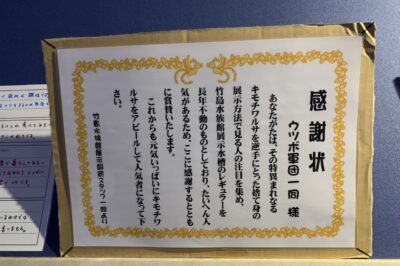 感謝状
ウツボ軍団一同 様
あなたがたは、その特異まれなる
キモチワルサを逆手にとった捨て身の
展示方法で見る人の注目を集め、
竹島水族館展示水槽のレギュラーを
長年不動のものとしており、たいへん人
気があるため、ここに感謝するととも
に賞賛いたします。
これからも元気いっぱいにキモチワ
ルサをアピールして人気者になって下
さい。
竹島水族館展示飼育スタッフ一同より